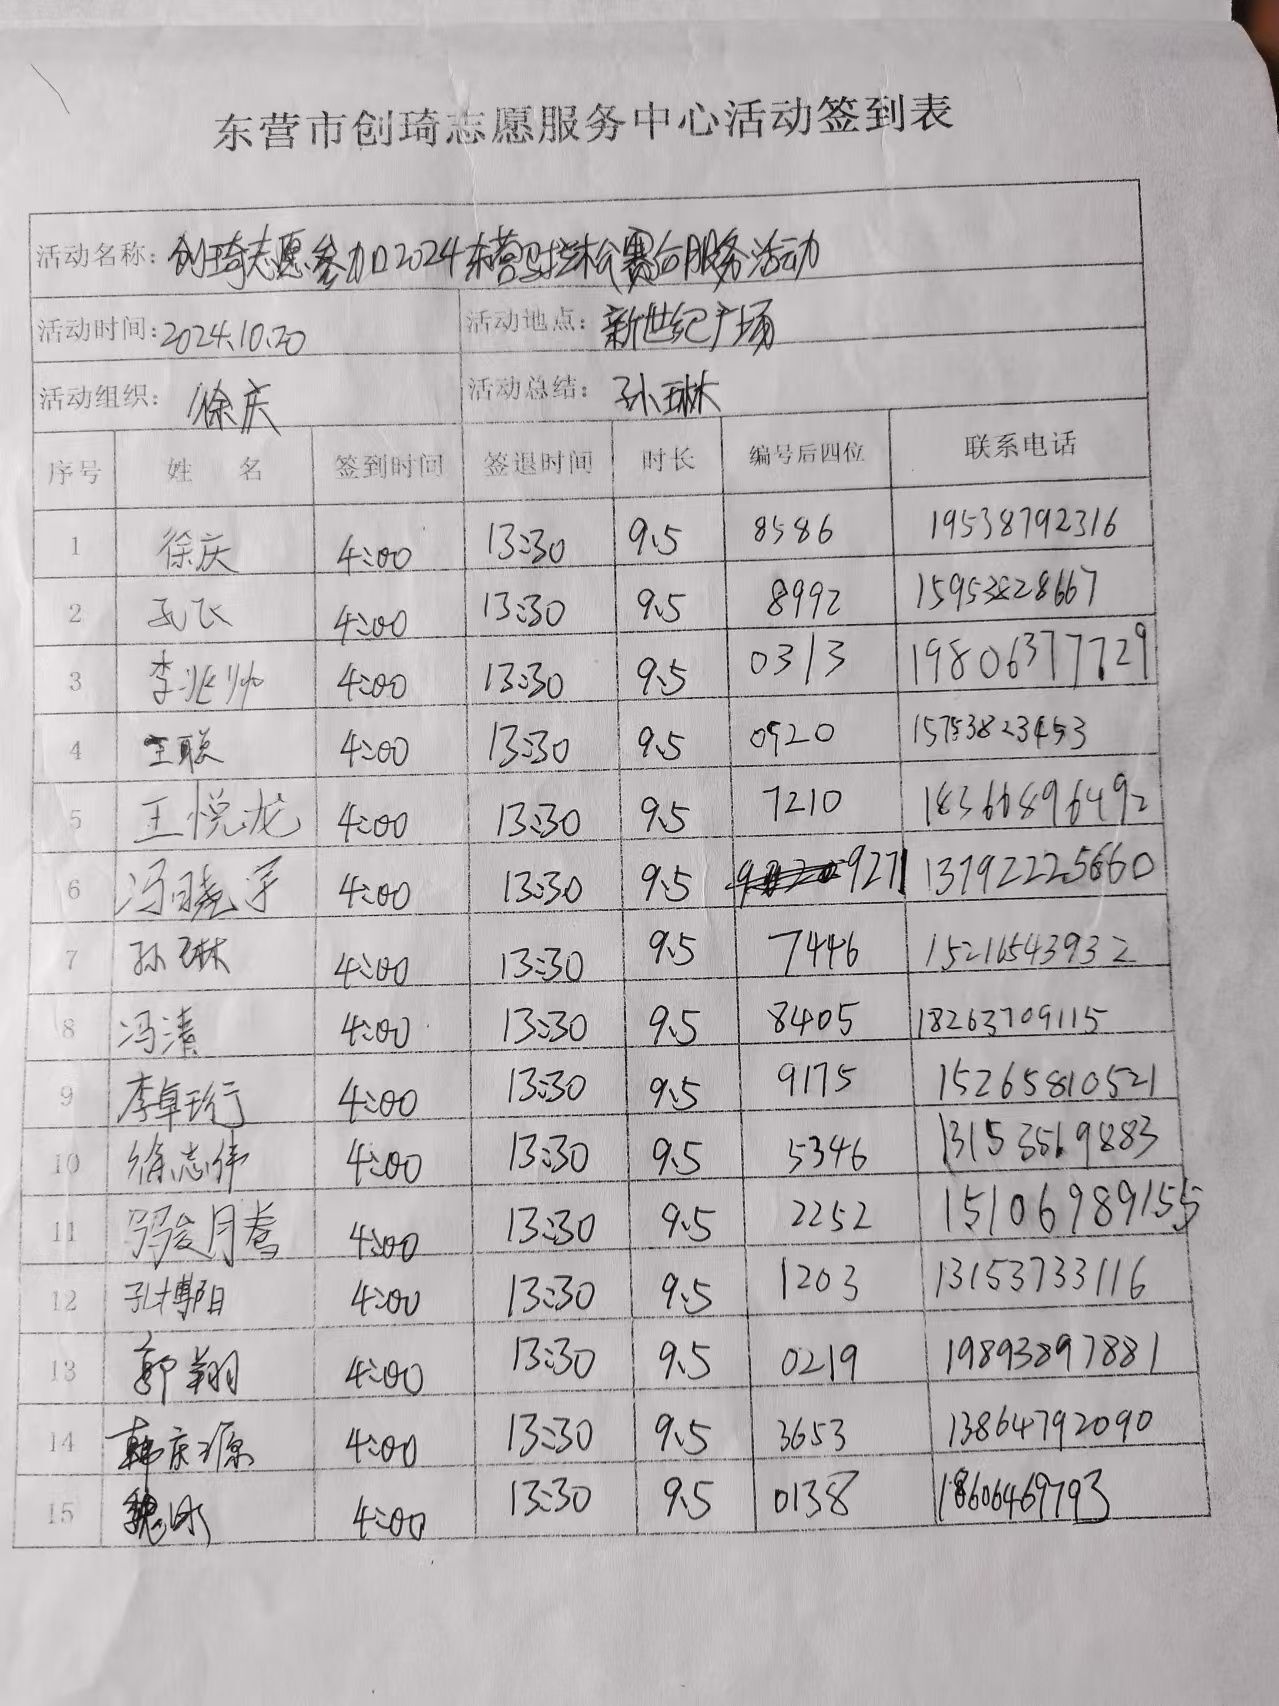 东营市创琦志愿服务中心活动签到表
活动名称: 创琦志愿参加2024东营马拉松赛后服务活动
活动时间: 2024.10.20 活动地点: 新世纪广场
活动组织: 徐庆 活动总结: 孙琳
序号 姓 名 签到时间 签退时间 时长 编号后四位 联系电话
1 徐庆 4:00 13:30 9.5 8586 19538792316
2 孔飞 4:00 13:30 9.5 8992 15953828667
3 李兆帅 4:00 13:30 9.5 0313 19806377729
4 王联 4:00 13:30 9.5 0920 15753823453
5 王悦龙 4:00 13:30 9.5 7210 18366896492
6 冯晓宇 4:00 13:30 9.5 9271 13792225660
7 孙琳 4:00 13:30 9.5 7446 15216543932
8 冯清 4:00 13:30 9.5 8405 18263709115
9 李卓珩 4:00 13:30 9.5 9175 15265810521
10 徐志伟 4:00 13:30 9.5 5346 13153569883
11 4:00 13:30 9.5 2252 15106989155
12 孔博阳 4:00 13:30 9.5 1203 13153733116
13 郭翔 4:00 13:30 9.5 0219 19893897881
14 韩庆源 4:00 13:30 9.5 3653 13864792090
15 魏冰 4:00 13:30 9.5 0138 18606469793